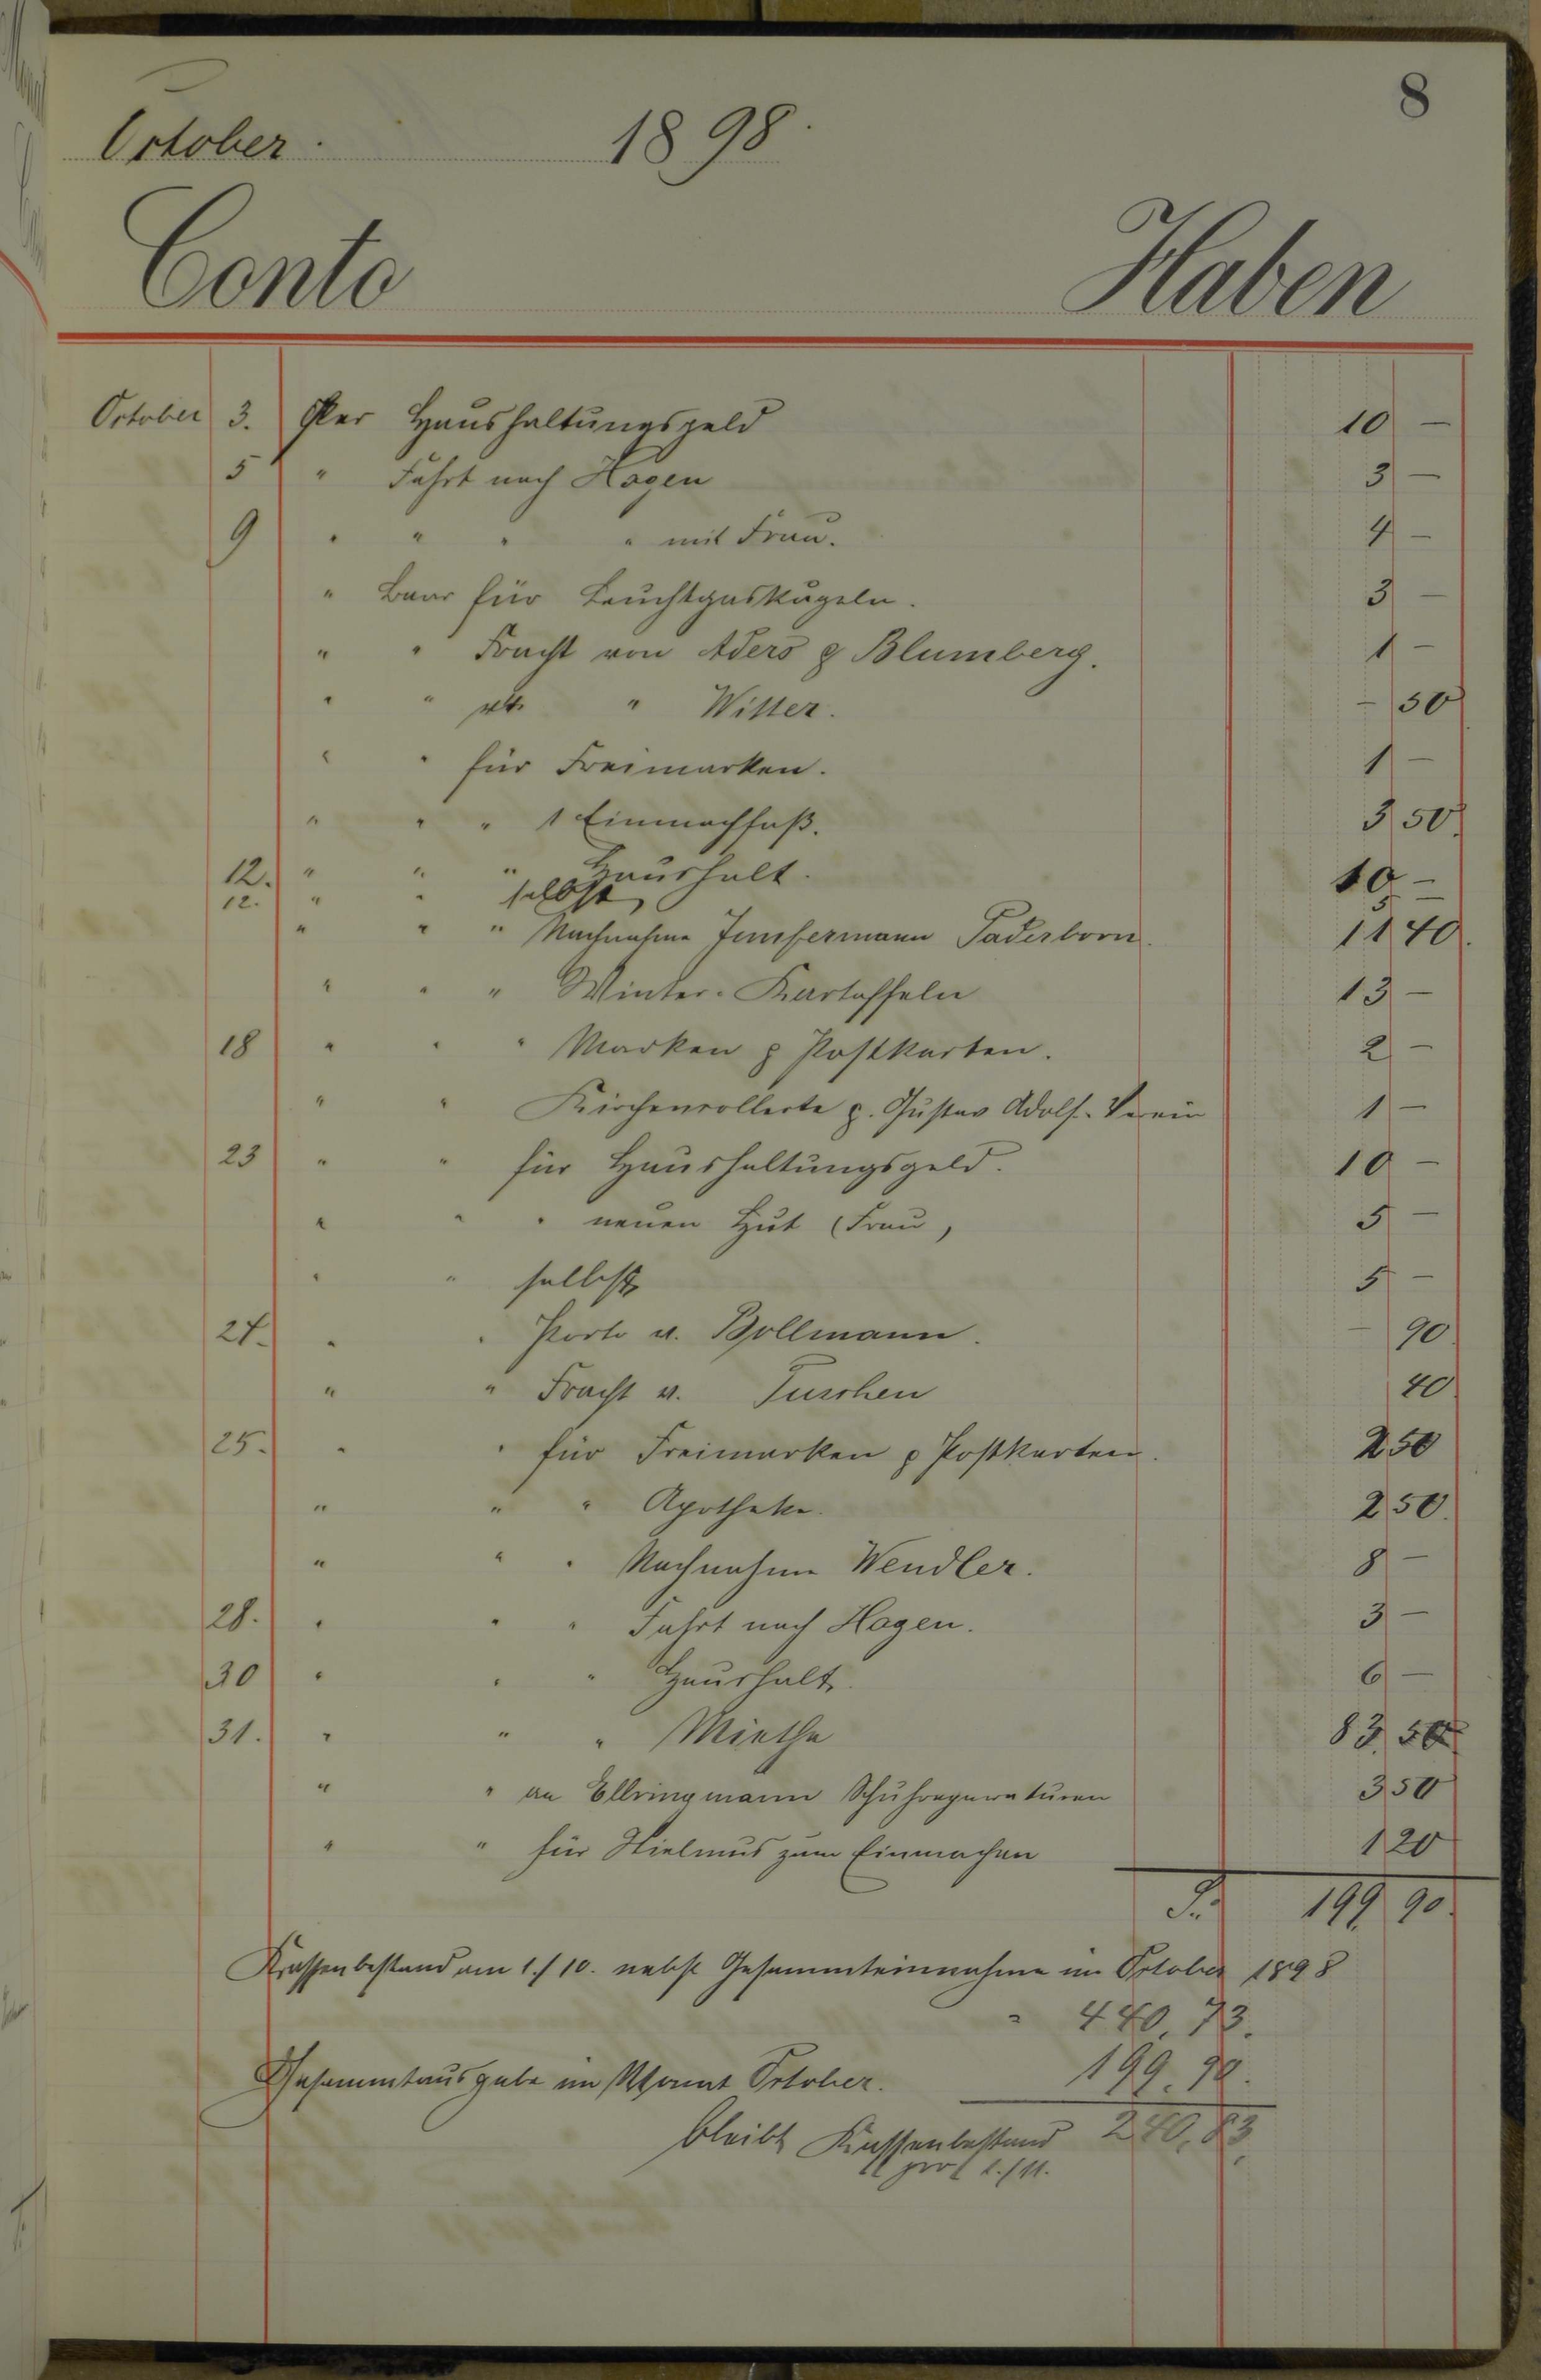 8
October. 1898.
Conto Haben
October 3. Per Haushaltungsgeld 10 —
5 " Fahrt nach Hagen 3 —
9 " " " " mit Frau. 4 —
" Baar für Leuchtgaskugeln. 3 —
" " Fracht von Aders & Blumberg. 1 —
" " " Witter. — 50
" " für Freimarken. 1 —
" " " 1 Einmachfaß. 3 50
12. " " " Haushalt. 10 —
12. " " selbst 5 —
" " " Nachnahme Junfermann Paderborn. 11 40
" " " Winter-Kartoffeln 13 —
18 " " " Marken & Postkarten. 2 —
" " Kirchencollecte z. Gustav Adolf-Verein 1 —
23 " " für Haushaltungsgeld. 10 —
" " " neuen Hut (Frau) 5 —
" " selbst 5 —
24. " " Porto v. Bollmann. — 90
" " Fracht v. Tuschen 40
25. " " für Freimarken & Postkarten. 2 50
" " " Apotheke. 2 50
" " " Nachnahme Wendler. 8 —
28. " " " Fahrt nach Hagen. 3 —
30 " " " Haushalt. 6 —
31. " " " Miethe 83 50
" " an Ellringmann Schuhreparaturen 3 50
" " für Stielmus zum Einmachen 1 20
199 90
Kassenbestand am 1./10. nebst Gesammteinnahme im October 1898
= 440,73.
Gesammtausgabe im Monat October. 199.90.
bleibt Kassenbestand 240,83
pro 1./11.